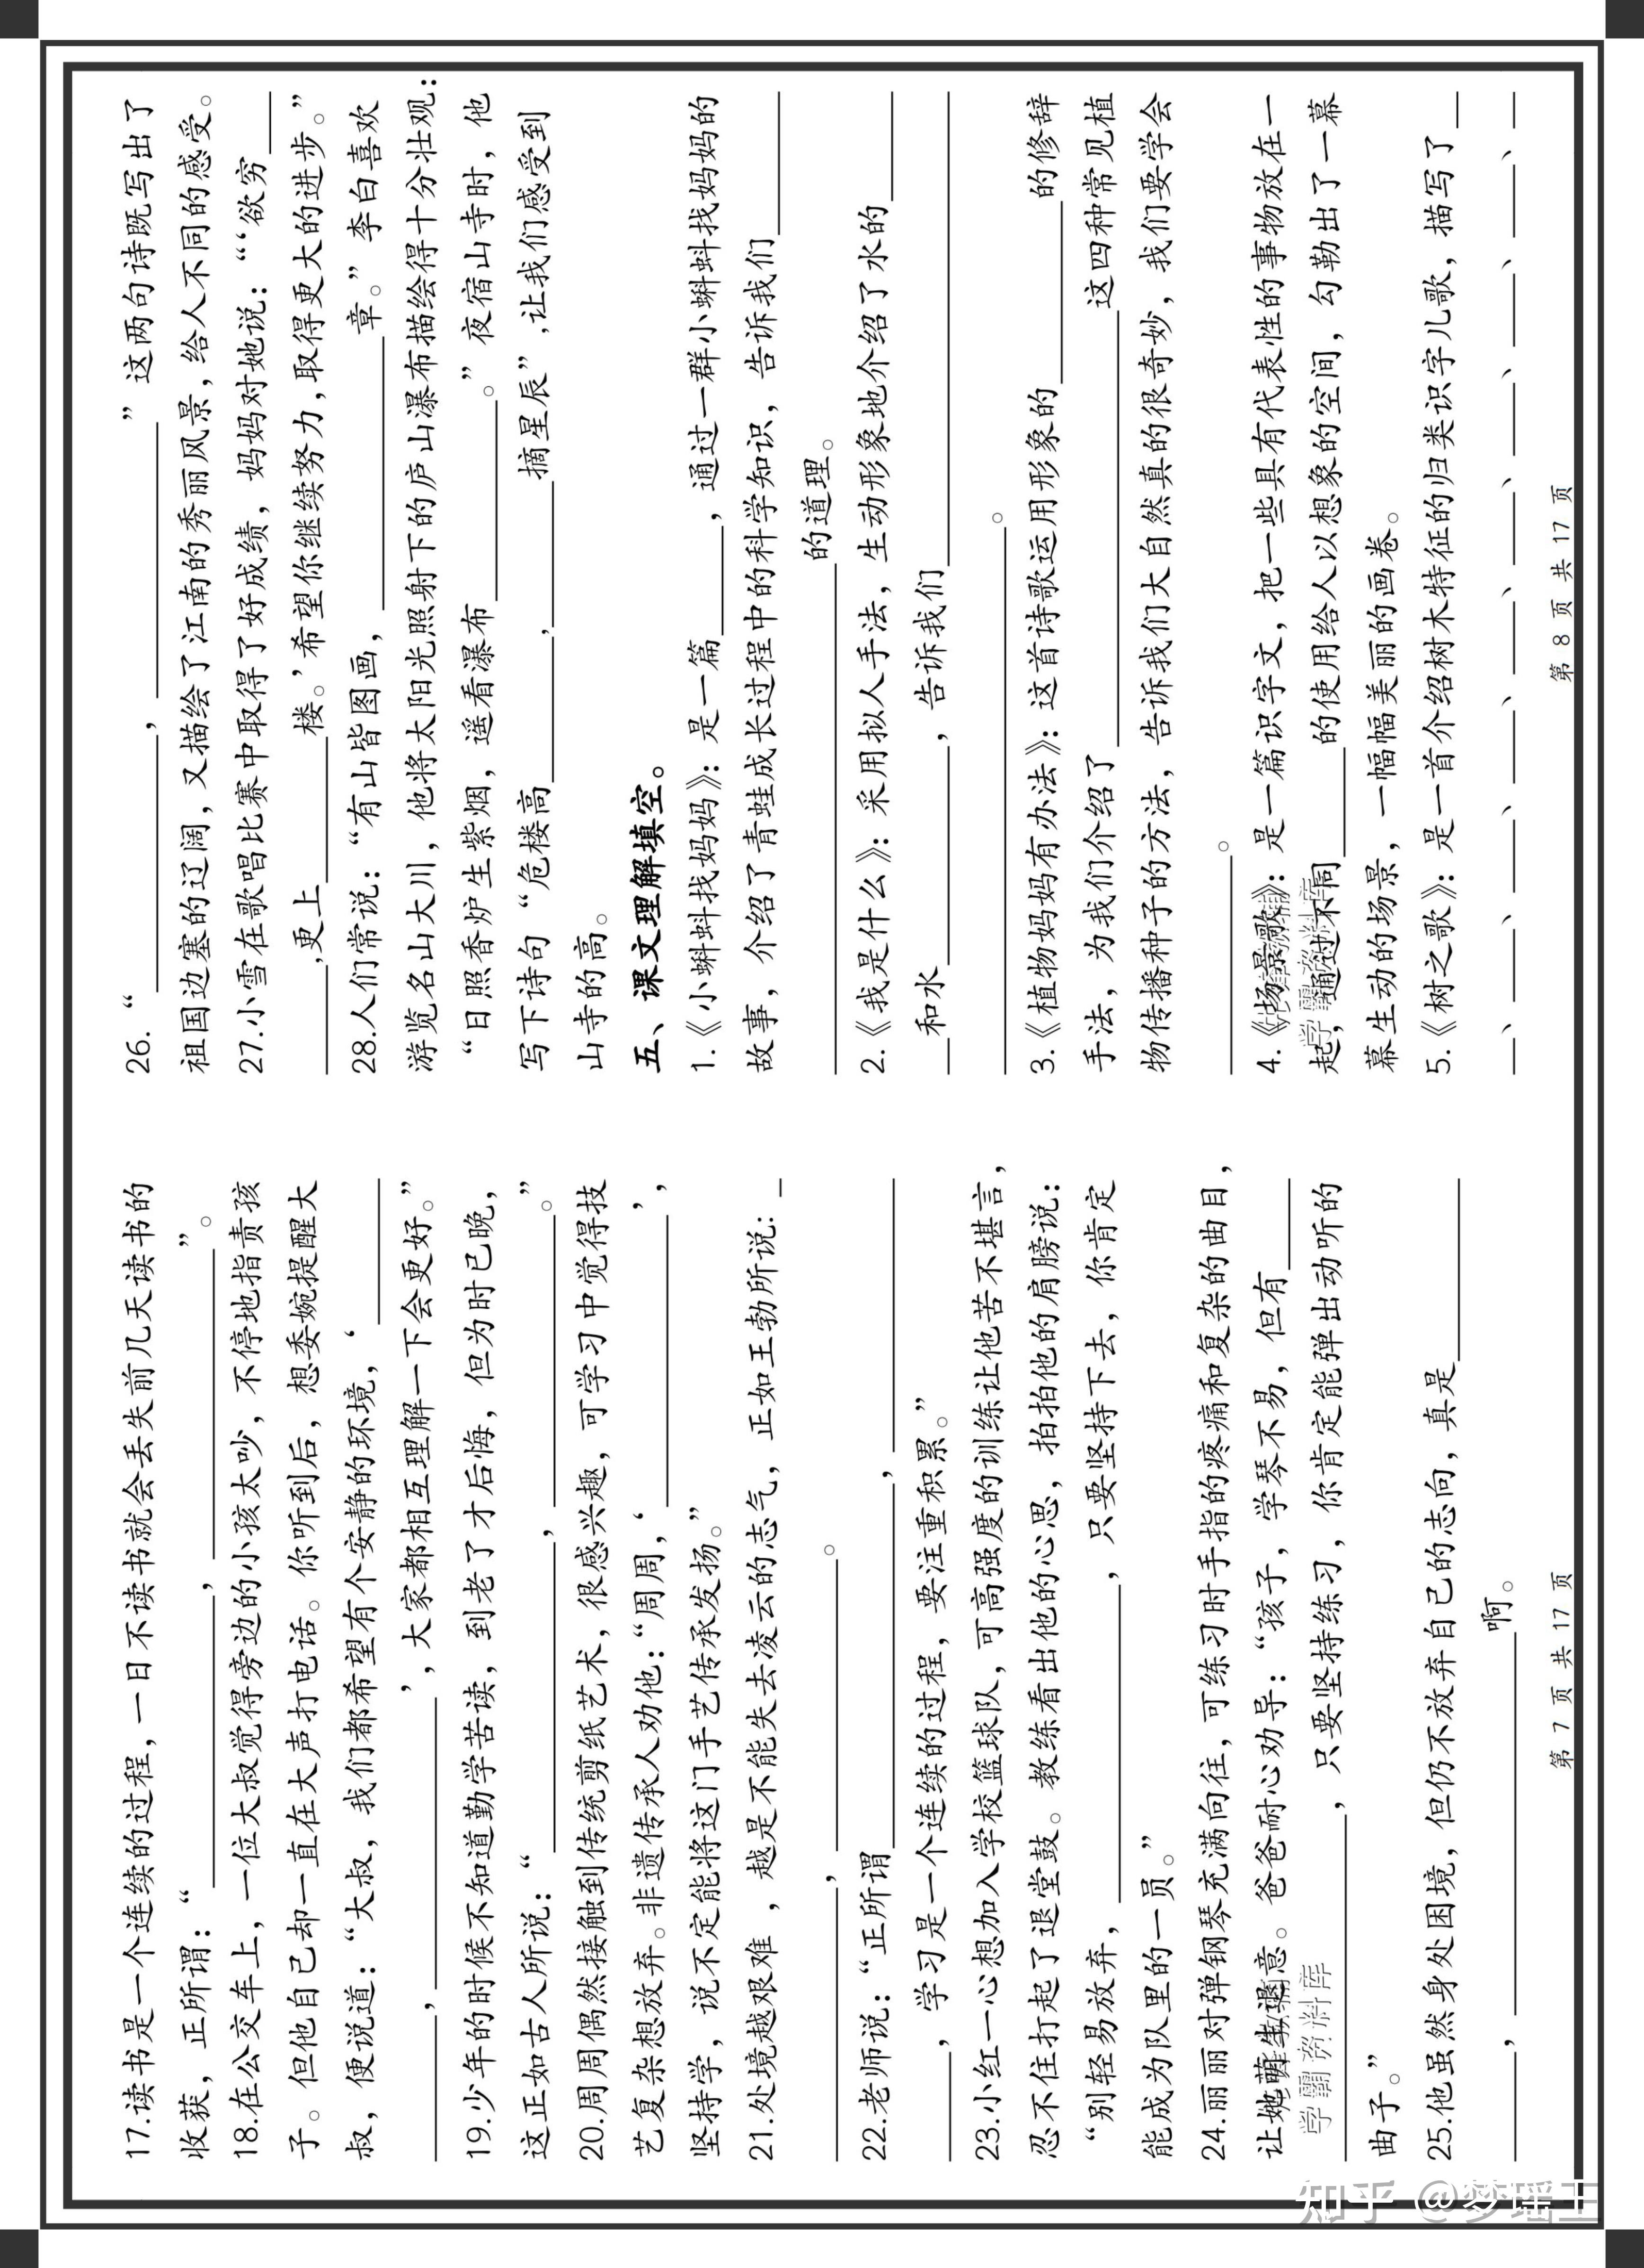 17.读书是一个连续的过程，一日不读书就会丢失前几天读书的
收获，正所谓：“__________，__________”。
18.在公交车上，一位大叔觉得旁边的小孩太吵，不停地指责孩
子。但他自己却一直在大声打电话。你听到后，想委婉提醒大
叔，便说道：“大叔，我们都希望有个安静的环境，‘______
______，__________’，大家都相互理解一下会更好。”
19.少年的时候不知道勤学苦读，到老了才后悔，但为时已晚，
这正如古人所说：“__________，__________。”
20.周周偶然接触到传统剪纸艺术，很感兴趣，可学习中觉得技
艺复杂想放弃。非遗传承人劝他：“周周，‘__________’，
坚持学，说不定能将这门手艺传承发扬。”
21.处境越艰难，越是不能失去凌云的志气，正如王勃所说：_
__________，__________。
22.老师说：“正所谓__________，__________
____，学习是一个连续的过程，要注重积累。”
23.小红一心想加入学校篮球队，可高强度的训练让他苦不堪言，
忍不住打起了退堂鼓。教练看出他的心思，拍拍他的肩膀说：
“别轻易放弃，__________，只要坚持下去，你肯定
能成为队里的一员。”
24.丽丽对弹钢琴充满向往，可练习时手指的疼痛和复杂的曲目，
让她萌生退意。爸爸耐心劝导：“孩子，学琴不易，但有____
__________，只要坚持练习，你肯定能弹出动听的
曲子。”
25.他虽然身处困境，但仍不放弃自己的志向，真是______
____，__________啊。
第 7 页 共 17 页
26.“__________，__________”这两句诗既写出了
祖国边塞的辽阔，又描绘了江南的秀丽风景，给人不同的感受。
27.小雪在歌唱比赛中取得了好成绩，妈妈对她说：“‘欲穷__
____，更上______楼。’希望你继续努力，取得更大的进步。”
28.人们常说：“有山皆图画，__________章。”李白喜欢
游览名山大川，他将太阳光照射下的庐山瀑布描绘得十分壮观：
“日照香炉生紫烟，遥看瀑布________。”夜宿山寺时，他
写下诗句“危楼高______，______摘星辰”，让我们感受到
山寺的高。
五、课文理解填空。
1.《小蝌蚪找妈妈》：是一篇____，通过一群小蝌蚪找妈妈的
故事，介绍了青蛙成长过程中的科学知识，告诉我们______
__________的道理。
2.《我是什么》：采用拟人手法，生动形象地介绍了水的____
_和水________，告诉我们__________
__________。
3.《植物妈妈有办法》：这首诗歌运用形象的______的修辞
手法，为我们介绍了__________这四种常见植
物传播种子的方法，告诉我们大自然真的很奇妙，我们要学会
________。
4.《场景歌》：是一篇识字文，把一些具有代表性的事物放在一
起，通过不同____的使用给人以想象的空间，勾勒出了一幕
幕生动的场景，一幅幅美丽的画卷。
5.《树之歌》：是一首介绍树木特征的归类识字儿歌，描写了_
_、___、___、___、___、___、___、___、___、_
第 8 页 共 17 页
学霸资料库
学霸资料库
知乎 @梦瑶王